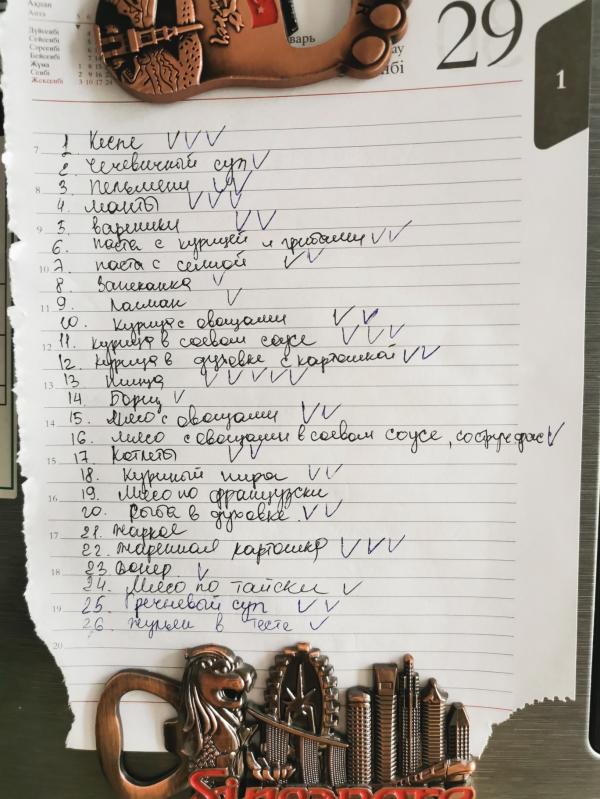 Ақпан
Апта 5 6
Дүйсенбі
Сейсенбі
Сәрсенбі
Бейсенбі
Жұма
Сенбі
Жексенбі
варь
29
1
7
8
9
10
11
12
13
14
15
16
17
18
19
20
1 Кеспе
2. Чечевичный суп
3. Пельмени
4. Манты
5. вареники
6. паста с курицей и грибами
7. паста с семгой
8. Запеканка
9. Лагман
10. Курица с овощами
11. Курица в соевом соусе
12. Курица в духовке с картошкой
13. Пицца
14. Борщ
15. Мясо с овощами
16. Мясо с овощами в соевом соусе, со струч фас
17. Котлеты
18. Куриный пирог
19. Мясо по французски
20. Рыба в духовке.
21. Жаркое
22. Жаренная картошка
23.
24. Мясо по тайски
25. Гречневый суп
26. Жульен в тесте
Singapore